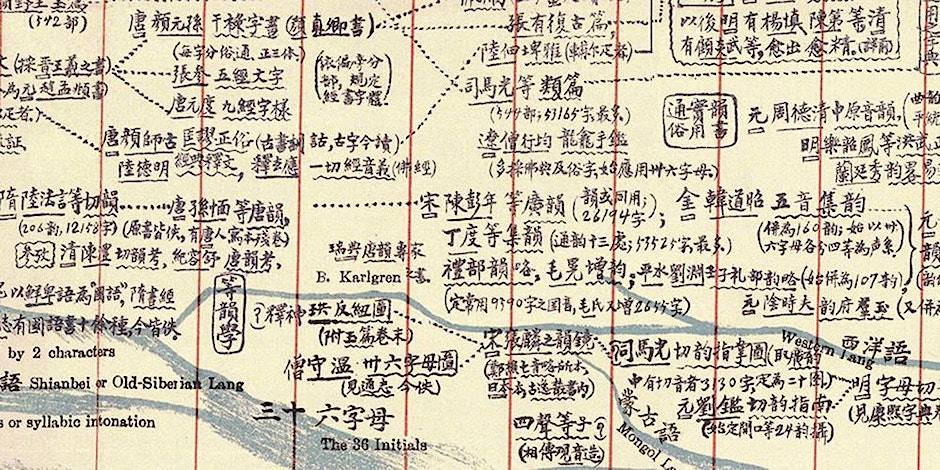 (542部)
唐 顏元孫 干祿字書 (顏真卿書)
(每字分俗,通,正三体)
張參 五經文字
唐元度 九經字樣
(依偏旁分部,規定經書字體)
張有復古篇,
陸佃埤雅
司馬光等 類篇
(544部; 53165字最多)
遼僧行均 龍龕手鑑
(多採佛典及俗字,始應用卅六字母)
以後明有楊慎 陳第等清
有顧炎武等,愈出愈精.(詳前)
通俗實用韻書
元 周德清中原音韻,
明樂韶鳳等洪武正
蘭廷秀韵畧易
唐顏師古 匡謬正俗 (古書訓詁,古字今讀)
陸德明 經典釋文,
一切經音義 (佛經)
隋陸法言等切韻
(206韵,12158字)
唐孫愐等唐韻,
(原書皆佚,有唐人寫本殘卷)
清陳澧切韵考, 紀容舒 唐韵考,
瑞典唐韻專家
B. Karlgren 之書
宋 陳彭年 等廣韻 (韻或同用; 26194字);
丁度等集韻 (通韵十三處; 53525字最多)
禮部韻略, 毛晃增韵, 平水劉淵壬子礼部韵略 (始併為107韵)
(定常用9590字之國音, 毛氏又增2655字)
金 韓道昭 五音集韵
(併為160韵; 始以卅六字母各分四等為聲系)
元陰時夫 韵府羣玉 (又併
以鮮卑語為"國語", 隋書經
志有國語書十餘種,今皆佚
by 2 characters
語 Shianbei or Old-Siberian Lang
s or syllabic intonation
等韻學
釋神珙 反紐圖
(附玉篇卷末)
僧守溫 卅六字母圖
(見通志 今佚)
三十六字母
The 36 Initials
宋張麟之韻鏡
四聲等子
司馬光切韵指掌圖
元劉鑑 切韵指南
明 字母切
(見康熙字典
Western Lang 西洋語
蒙古語
Mongol La